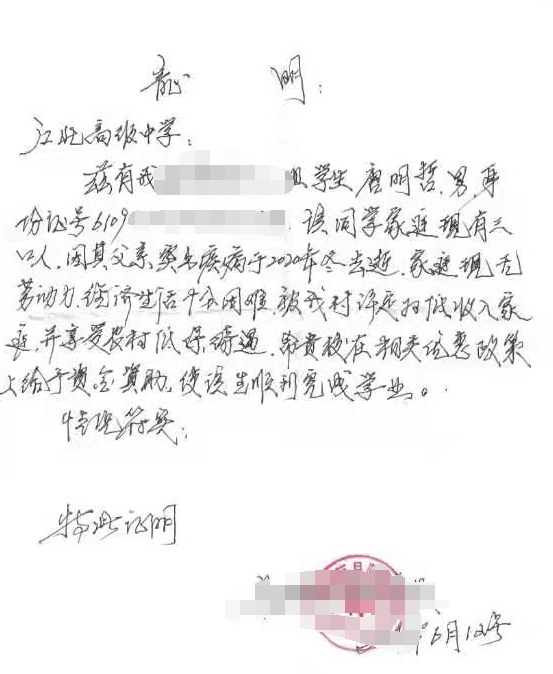 证 明：
江北高级中学：
兹有我 组学生唐明哲，男，身
份证号6109 ，该同学家庭现有三
口人，因其父亲突发疾病于2020年冬去逝，家庭现无
劳动力，经济生活十分困难，被我村评定为低收入家
庭，并享受农村低保待遇，希贵校在相关优惠政策
上给予资金资助，使该生顺利完成学业。
情况符实；
特此证明
6月12号